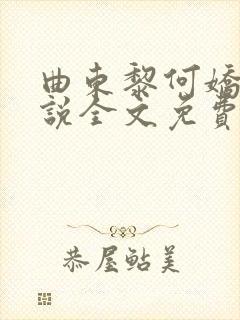 曲东黎何嬌
説全文免費
恭屋鲇美